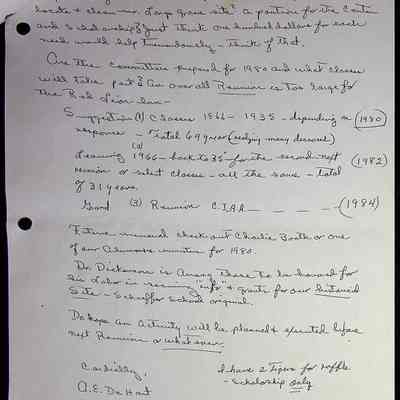 locate & clean our Long grave site? A positive for the Center
and Scholarships? Just think one hundred dollars for each
need would help tremendously - Think of that.
Are the committees prepared for 1980 and what classes
will take part? An overall Reunion is too large for
the Red Lion Inn -
Suggestion (1) Classes 1866 - 1935 - depending on (1980)
response - Total 69 years (realizing many deceased)
(2)
Leaving 1966 - back to 35 - for the second next (1982)
reunion or select classes - all the same - total
of 31 years.
Good (3) Reunion C.I.A.A. — — — — (1984)
Future memorial check out Charlie Booth or one
of our Alumnae ministers for 1980.
Dr. Dickerson is among those to be honored for
his labor in securing "info" & grants for our historical
Site - Schaeffer School original.
Do hope an activity will be planned & executed before
next Reunion or whatever.
Cordially,
A. E. De Hart
I have 2 Tigers for raffle
- Scholarship only